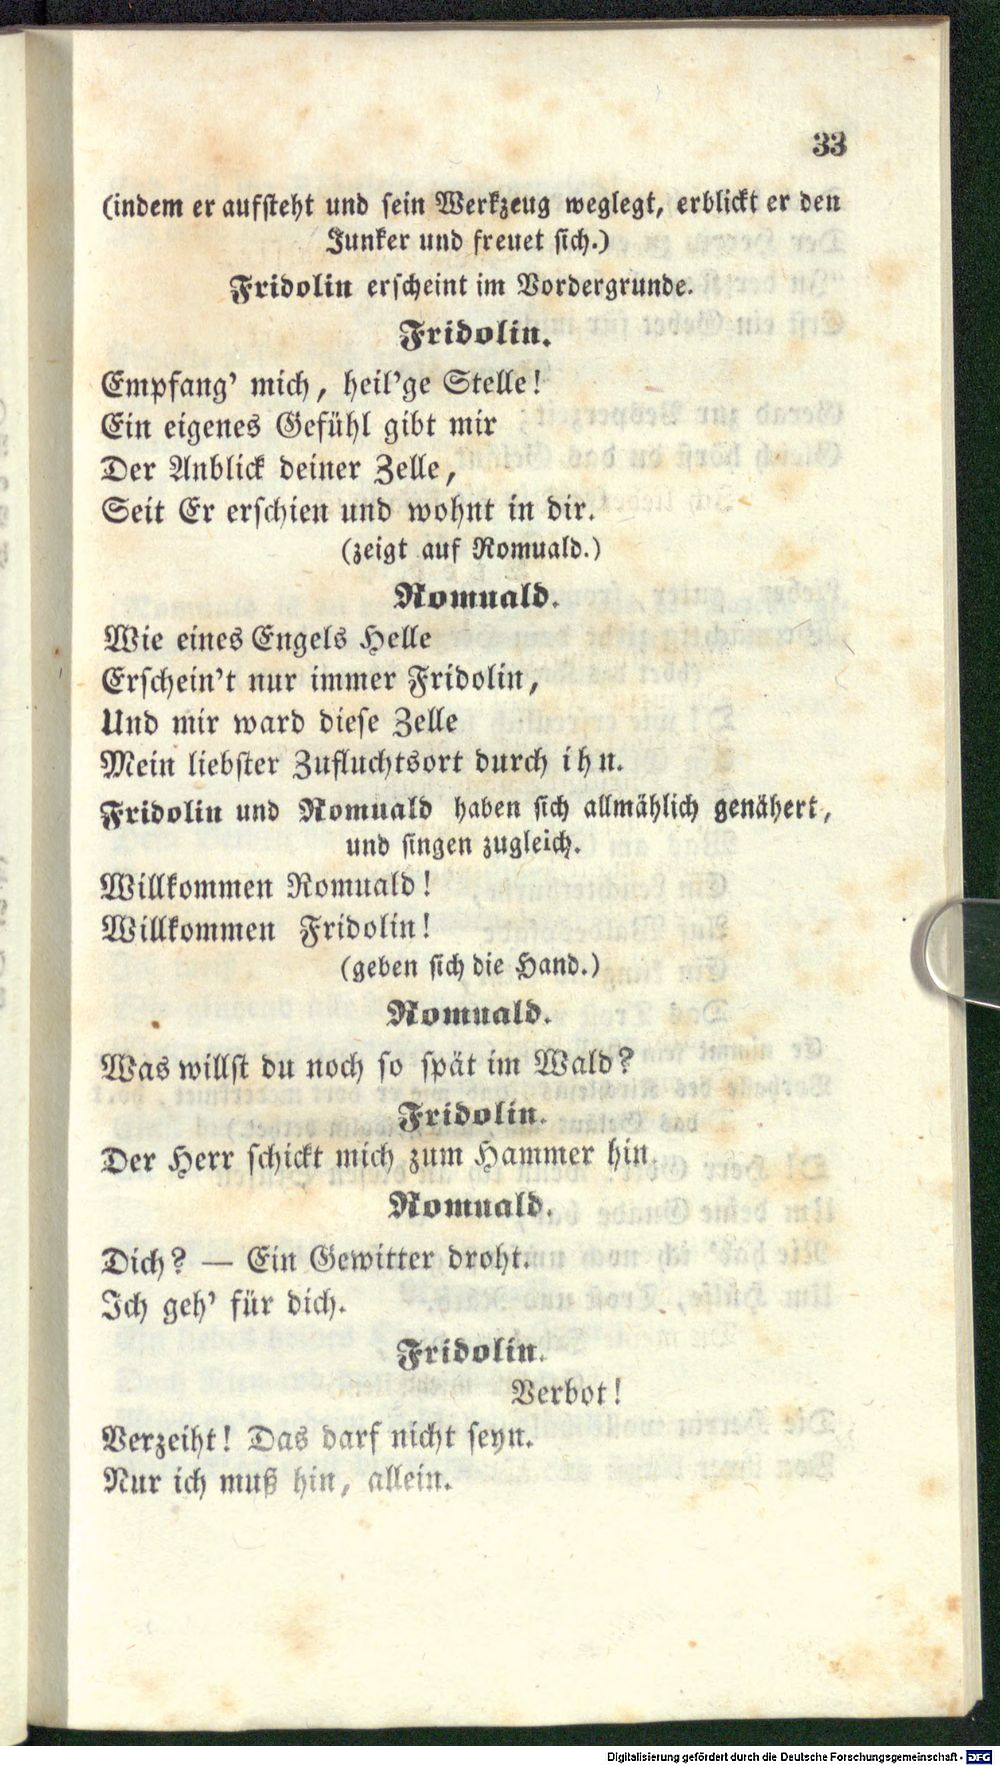 33
(indem er aufsteht und sein Werkzeug weglegt, erblickt er den
Junker und freuet sich.)
Fridolin erscheint im Vordergrunde.
Fridolin.
Empfang' mich, heil'ge Stelle!
Ein eigenes Gefühl gibt mir
Der Anblick deiner Zelle,
Seit Er erschien und wohnt in dir.
(zeigt auf Romuald.)
Romuald.
Wie eines Engels Helle
Erschein't nur immer Fridolin,
Und mir ward diese Zelle
Mein liebster Zufluchtsort durch ihn.
Fridolin und Romuald haben sich allmählich genähert,
und singen zugleich.
Willkommen Romuald!
Willkommen Fridolin!
(geben sich die Hand.)
Romuald.
Was willst du noch so spät im Wald?
Fridolin.
Der Herr schickt mich zum Hammer hin.
Romuald.
Dich? — Ein Gewitter droht.
Ich geh' für dich.
Fridolin.
Verbot!
Verzeiht! Das darf nicht seyn.
Nur ich muß hin, allein.
Digitalisierung gefördert durch die Deutsche Forschungsgemeinschaft - DFG